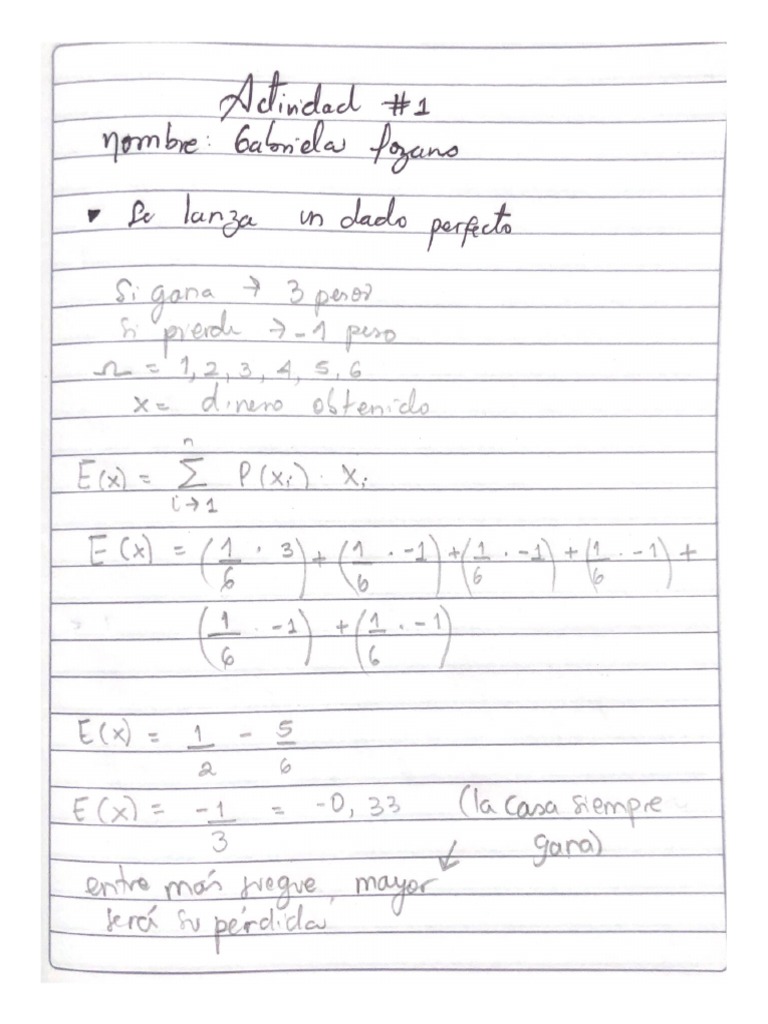 Actividad #1
nombre: Gabriela Lozano
▾ Se lanza un dado perfecto
Si gana → 3 pesos
Si pierde → -1 peso
Ω = 1, 2, 3, 4, 5, 6
x = dinero obtenido
E(x) = n Σ i→1 P(xi) · xi
E(x) = (1/6 · 3) + (1/6 · -1) + (1/6 · -1) + (1/6 · -1) +
(1/6 · -1) + (1/6 · -1)
E(x) = 1/2 - 5/6
E(x) = -1/3 = -0,33 (la casa siempre
gana)
entre más juegue, mayor
será su pérdida